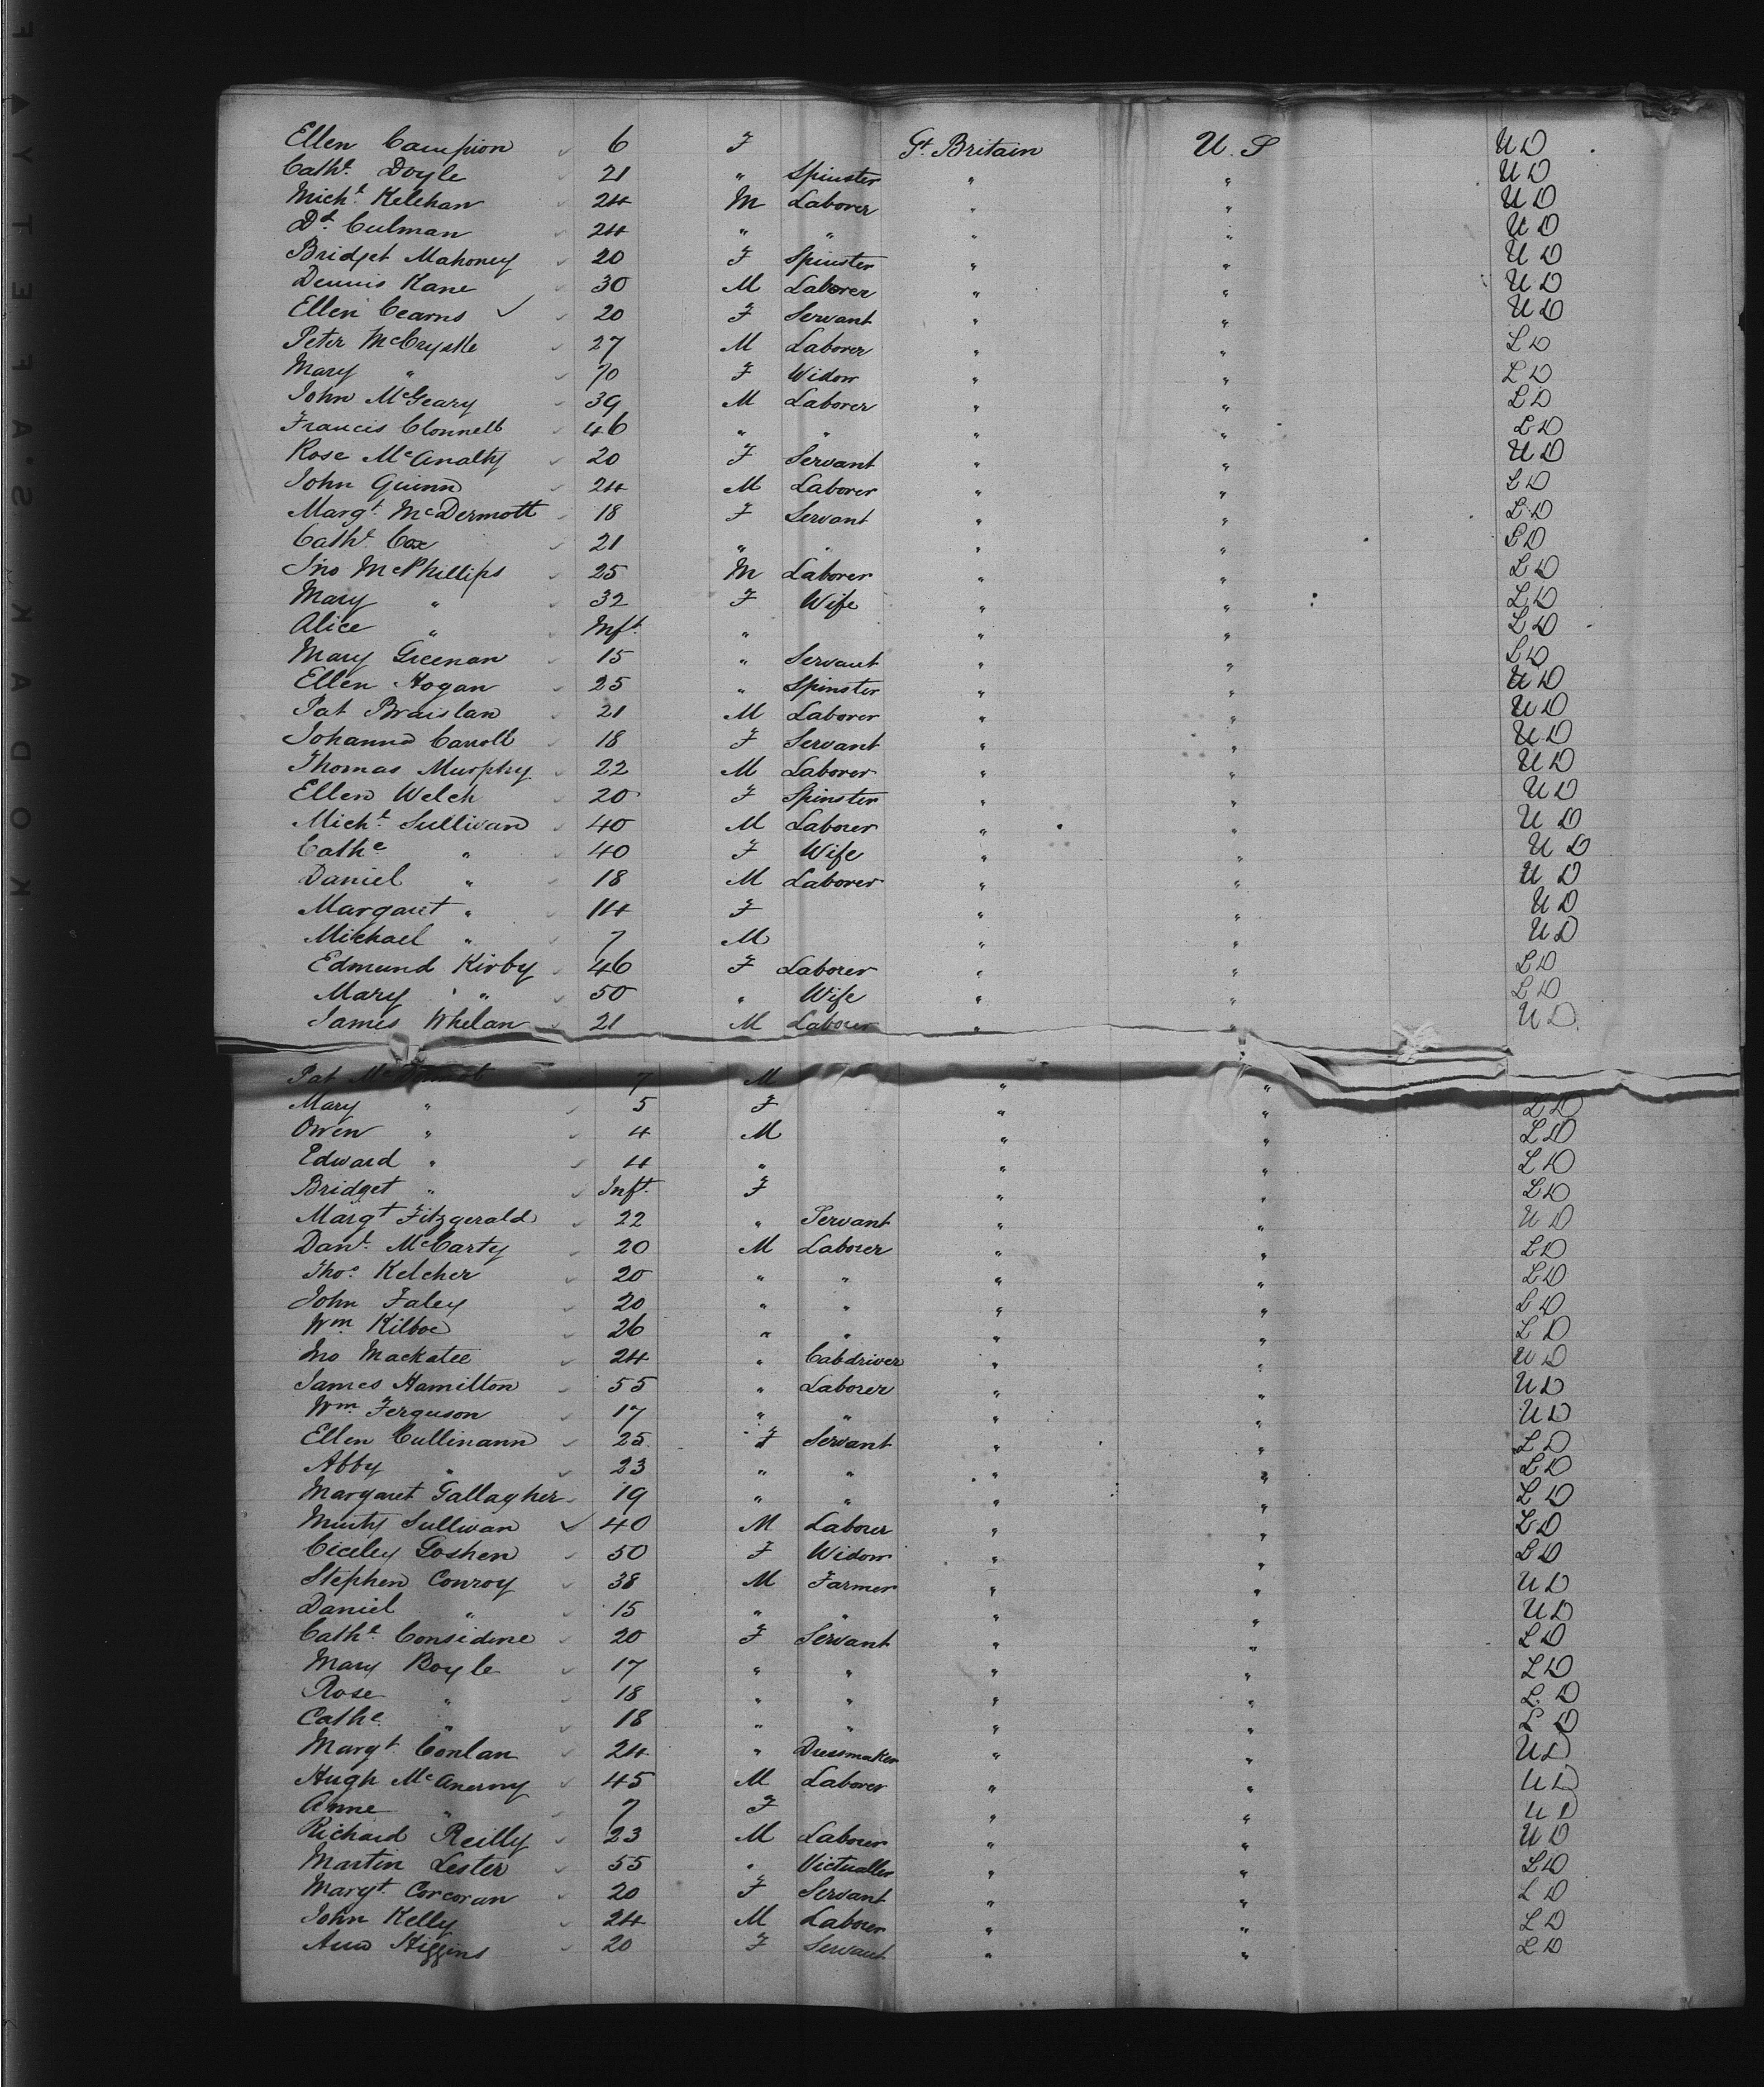 Ellen Campion 6 F Gt. Britain U.S U D
Cathe. Doyle 21 " Spinster " " U D
Michl. Kelehan 24 M Laborer " " U D
Dd. Culman 24 " " " " U D
Bridget Mahoney 20 F Spinster " " U D
Dennis Kane 30 M Laborer " " U D
Ellen Cearns 20 F Servant " " U D
Peter 27 M Laborer " " L D
Mary " 70 F Widow " " L D
John McGeary 39 M Laborer " " L D
Francis Clonnell 46 " " " " L D
Rose McAnalty 20 F Servant " " U D
John Guinn 24 M Laborer " " L D
Margt. McDermott 18 F Servant " " L D
Cathe. Cox 21 " " " " L D
Jno McPhillips 25 M Laborer " " L D
Mary " 32 F Wife " " L D
Alice " Inft. " " " L D
Mary Greenan 15 " Servant " " L D
Ellen Hogan 25 " Spinster " " U D
Pat Braislan 21 M Laborer " " U D
Johanna Carroll 18 F Servant " " U D
Thomas Murphy 22 M Laborer " " U D
Ellen Welch 20 F Spinster " " U D
Michl. Sullivan 40 M Laborer " " U D
Cathe " 40 F Wife " " U D
Daniel " 18 M Laborer " " U D
Margaret " 14 F " " U D
Michael " 7 M " " U D
Edmund Kirby 46 F Laborer " " L D
Mary " 50 " Wife " " L D
James Whelan 21 M Laborer " " U D
Pat 7 M " "
Mary " 5 F " " L D
Owen " 4 M " " L D
Edward " 4 " " " L D
Bridget " Inft. F " " L D
Margt Fitzgerald 22 " Servant " " U D
Danl. McCarty 20 M Laborer " " L D
Thos. Kelcher 20 " " " " L D
John Faley 20 " " " " L D
Wm Kilboe 26 " " " " L D
Jno Mackatee 24 " Cabdriver " " U D
James Hamilton 55 " Laborer " " U D
Wm Ferguson 17 " " " " U D
Ellen Cullinann 25 F Servant " " L D
Abby " 23 " " " " L D
Margaret Gallagher 19 " " " " L D
Murty Sullivan 40 M Laborer " " L D
Ciceley Goshen 50 F Widow " " L D
Stephen Conroy 38 M Farmer " " U D
Daniel " 15 " " " " U D
Cathe. Considine 20 F Servant " " L D
Mary Boyle 17 " " " " L D
Rose " 18 " " " " L. D
Cathe. " 18 " " " " L D
Margt. Conlan 24 " Dressmaker " " U D
Hugh McAnerny 45 M Laborer " " U D
Anne " 7 F " " U D
Richard Reilly 23 M Laborer " " U D
Martin Lester 55 " Victualler " " L D
Margt. Corcoran 20 F Servant " " L D
John Kelly 24 M Laborer " " L D
Ann Higgins 20 F Servant " " L D
KODAK SAFETY